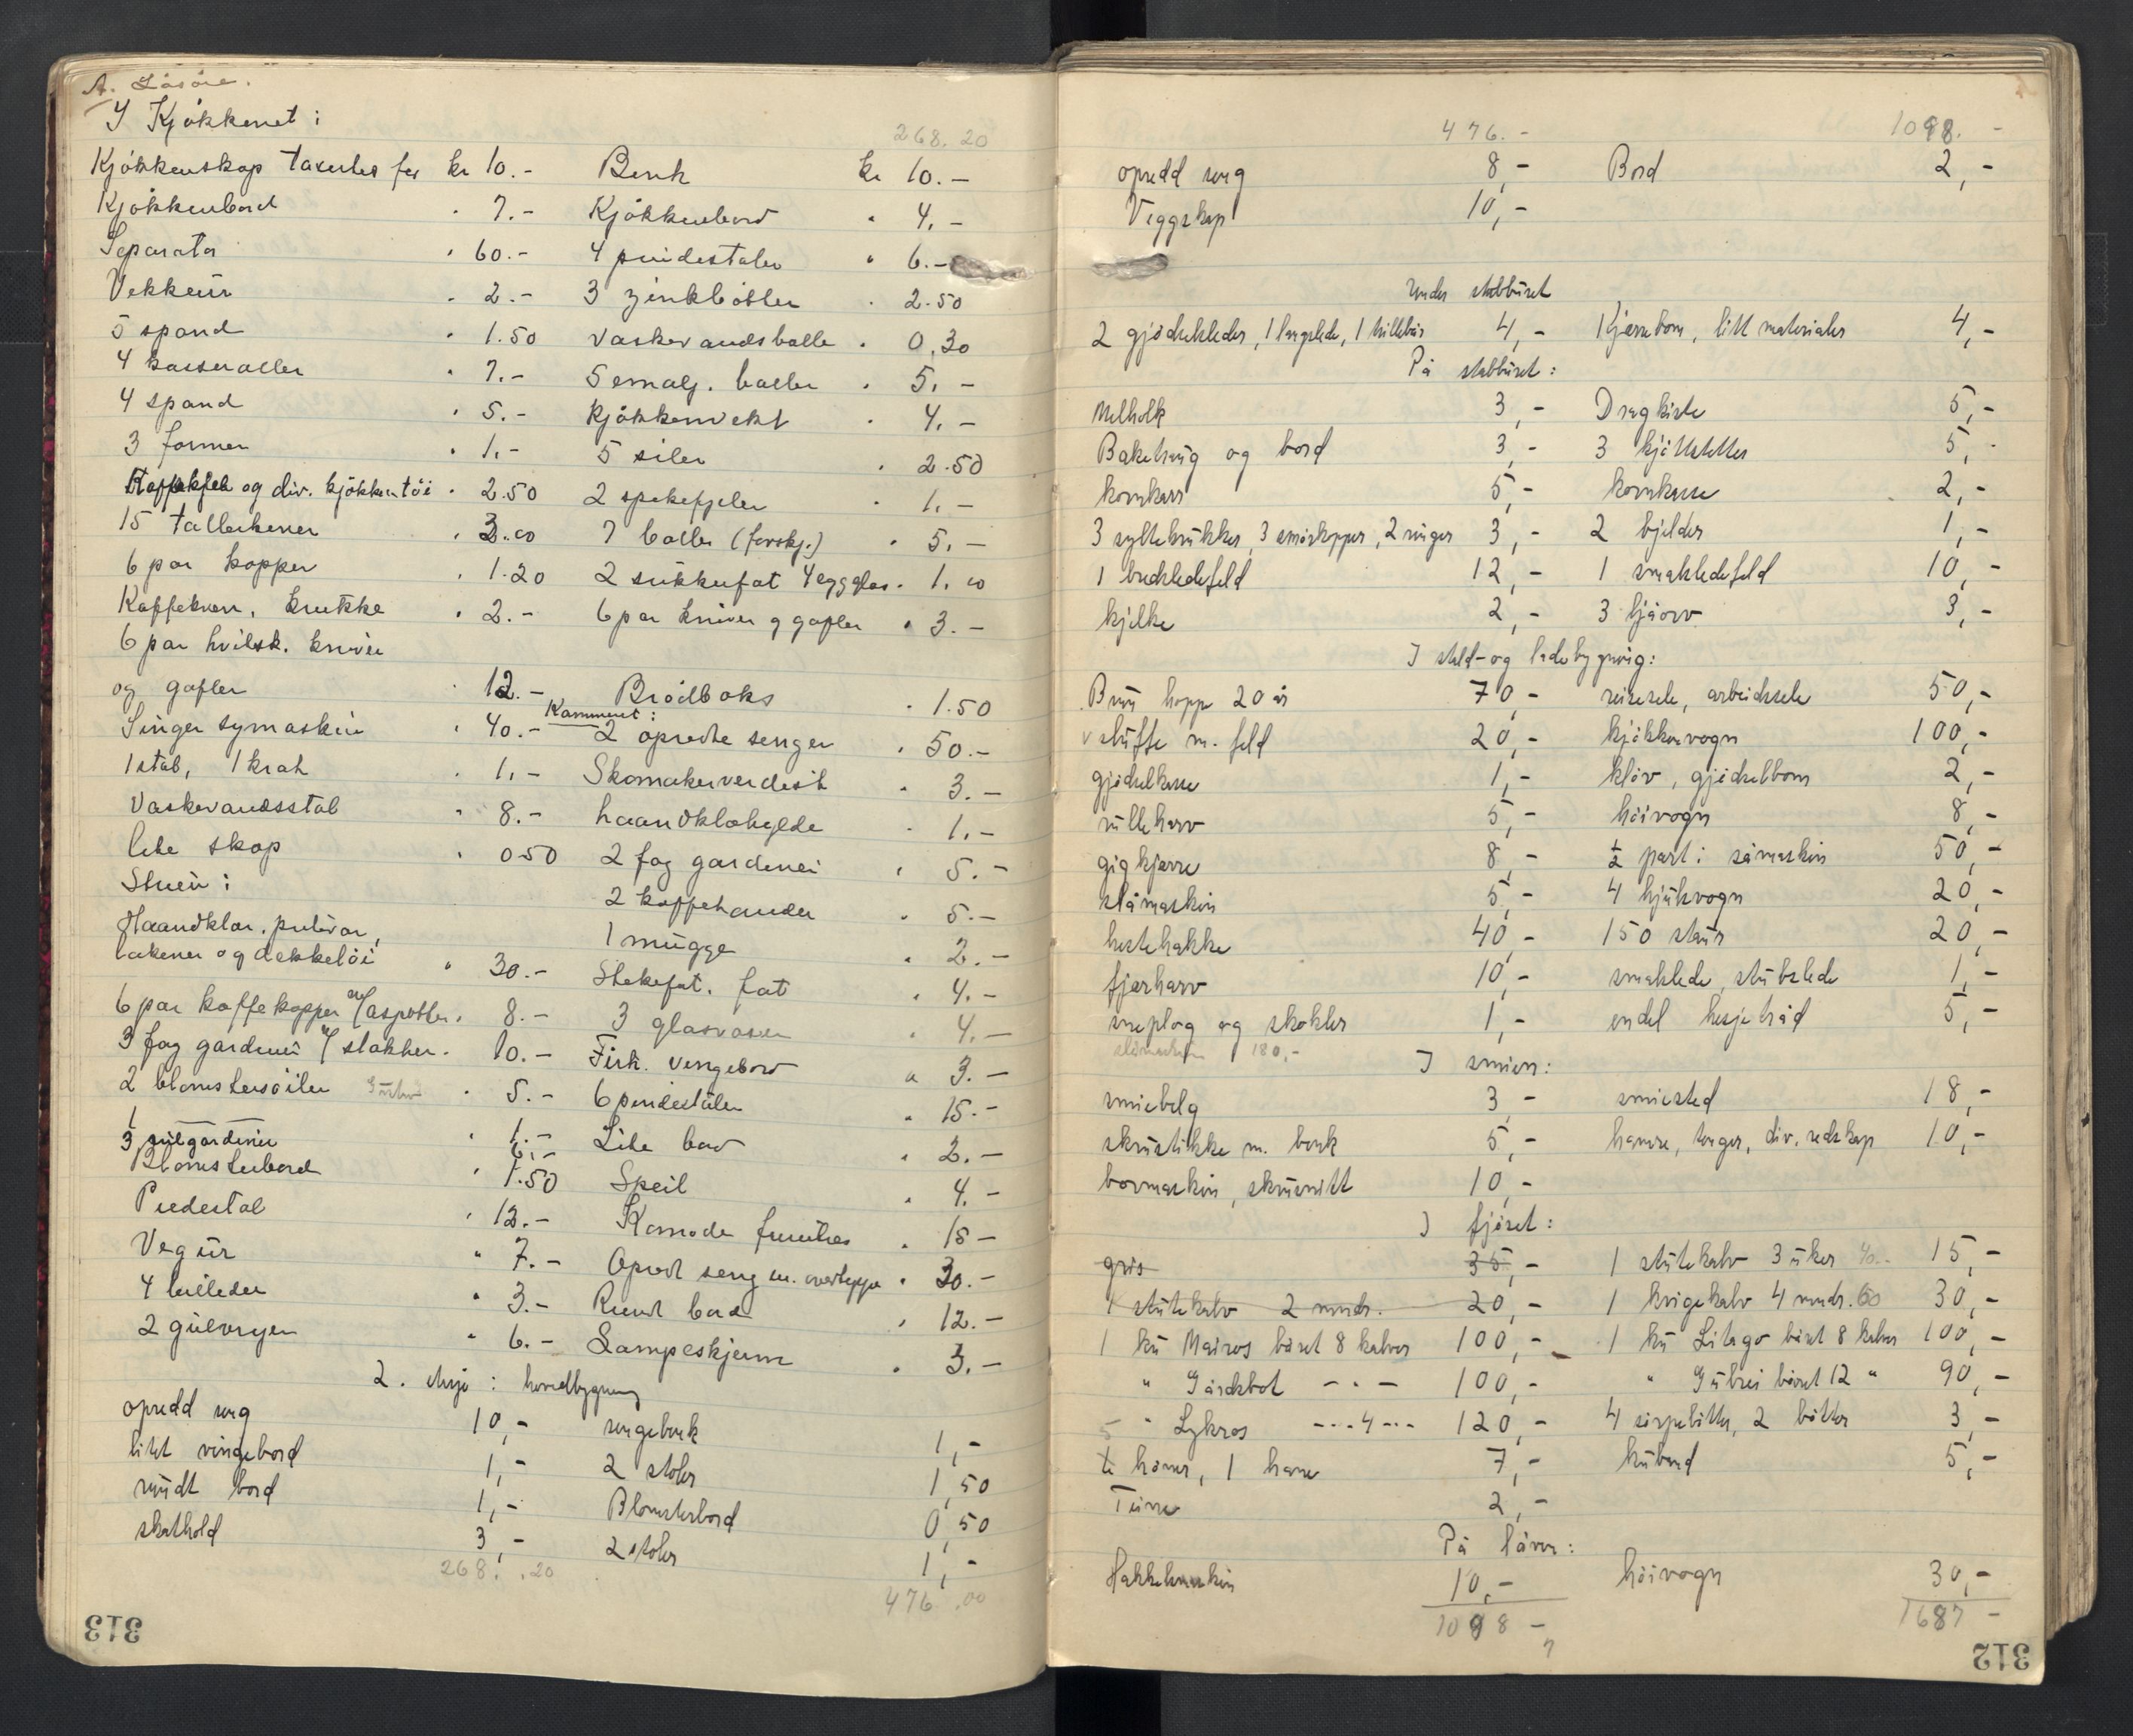 A. Løsøre.
I Kjøkkenet :
268.20
Kjøkkenskap taxertes for kr 10.- Benk kr 10.-
Kjøkkenbord " 7.- Kjøkkenbord " 4.-
Separator " 60.- 4 pindestoler " 6.-
Vekkeur " 2.- 3 zinkbøtter " 2.50
5 spand " 1.50 vaskevandsballe " 0.30
4 kasseroller " 7.- 5 emalj. boller " 5.-
4 spand " 5.- Kjøkkenvekt " 4.-
3 former " 1.- 5 siler " 2.50
Kaffekjel og div. kjøkkentøi " 2.50 2 spekefjeler " 1.-
15 tallerkener " 3.00 7 boller (forskj.) " 5.-
6 par kopper " 1.20 2 sukkerfat 4 eggglas " 1.00
Kaffekvern, krukke " 2.- 6 par kniver og gafler " 3.-
6 par hvitsk. kniver
og gafler " 12.- Brødboks " 1.50
Kammeret :
Singer symaskin " 40.- 2 opredte senger " 50.-
1 stol, 1 krak " 1.- Skomakerverksted " 3.-
Vaskevandsstol " 8.- haandklæhylde " 1.-
lite skap " 0.50 2 fag gardiner " 5.-
Stuen :
2 kaffekander " 5.-
Haandklær, putevar, 1 mugge " 2.-
lakener og dekketøi " 30.- Stekefat, fat " 4.-
6 par kaffekopper m/ aspetter " 8.- 3 glasvaser " 4.-
3 fag gardiner m/ stakker " 10.- Firk. vingebord " 3.-
2 blomstersøiler " 5.- 6 pindestoler " 15.-
1
3 rulgardiner " 1.- Lite bord " 2.-
6.-
Blomsterbord " 1.50 Speil " 4.-
Piedestal " 12.- Komode furutræ " 15-
Vegur " 7.- Opredt seng m. overteppe " 30.-
4 billeder " 3.- Rundt bord " 12.-
2 gulvryer " 6.- Lampeskjerm " 3.-
2. etasje : hovedbygning
opredd seng 10,- sengebenk 1,-
litet vingebord 1,- 2 stoler 1,50
rundt bord 1,- Blomsterbord 0,50
skathold 3,- 2 stoler 1,-
268.20 476.00
313
476.- 1098.-
opredd seng 8,- Bord 2,-
Veggskap 10,-
Under stabburet
2 gjødselsleder, 1 langslede, 1 trillebår 4,- 1 Kjerrebom, litt materialer 4,-
På stabburet :
Melholk 3,- Dragkiste 5,-
Baketraug og bord 3,- 3 kjøttstetter 5,-
kornkarr 5,- kornkasse 2,-
3 syltekrukker, 3 smørkopper, 2 ringer 3,- 2 bjelder 1,-
1 bredsledefeld 12,- 1 smalsledefeld 10,-
kjelke 2,- 3 ljåorv 3,-
I stald- og ladebygning :
Brun hoppe 20 år 70,- reisesele, arbeidssele 50,-
sluffe m. feld 20,- kjøkkenvogn 100,-
gjødselkasse 1,- kløv, gjødselbom 2,-
rulleharv 5,- høivogn 8,-
gigkjerre 8,- ½ part i såmaskin 50,-
slåmaskin 5,- 4 hjulsvogn 20,-
hestehakke 40,- 150 staur 20,-
fjærharv 10,- smalslede, stubslede 1,-
sneplog og skokler 1,- endel hesjetråd 5,-
slåmaskin 180,-
I smien :
smiebelg 3,- smiested 18,-
skrustikke m. benk 5,- hamre, tenger, div. redskap 10,-
bormaskin, skrusnitt 10,-
I fjøset :
gris 35,- 1 stutekalv 3 uker 40.- 15,-
1 stutekalv 2 mndr. 20,- 1 kvigekalv 4 mndr. 60 30,-
1 ku Mairos båret 8 kalver 100,- 1 ku Litago båret 8 kalver 100,-
" Gårdsbot - " - 100,- " Gullrei båret 12 " 90,-
" Lykros - " 4 " - 120,- 4 sørpebøtter, 2 bøtter 3,-
høner, 1 hane 7,- kuband 5,-
Teine 2,-
På låven :
Hakkelsmaskin 10,- høivogn 30,-
1098 - 1687 -
7
312